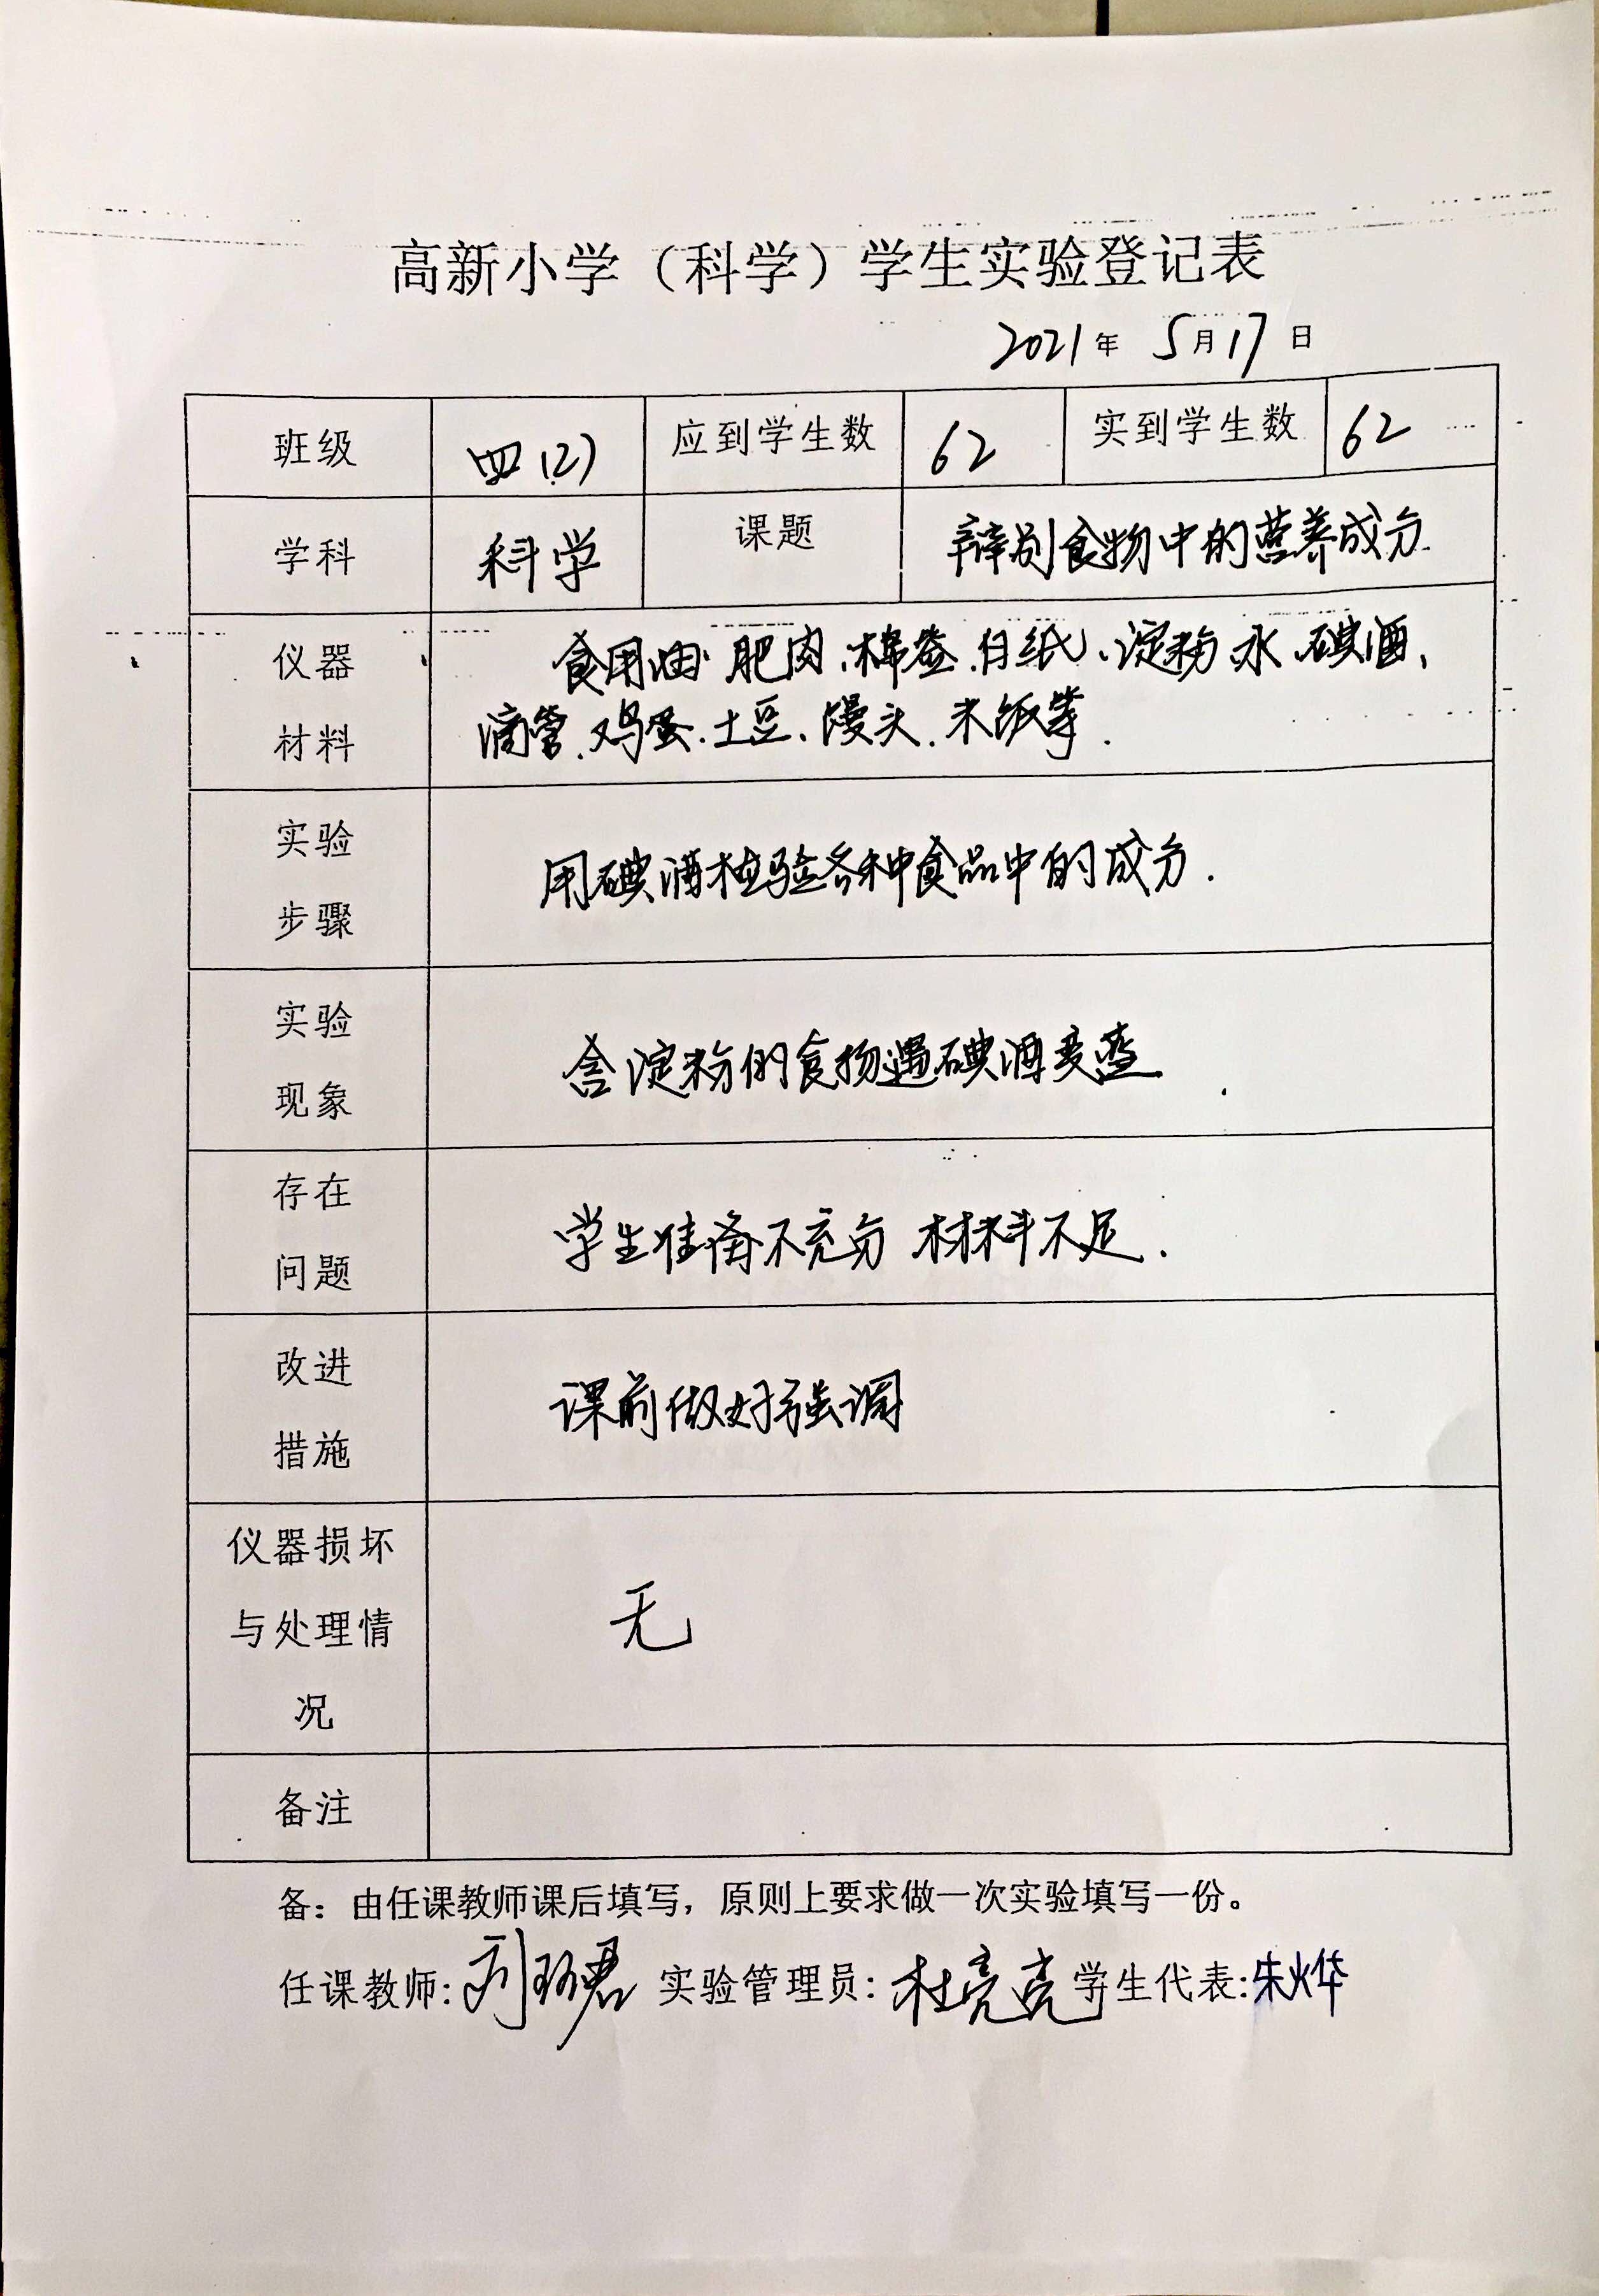 高新小学（科学）学生实验登记表
2021年 5月17日
班级 四(2) 应到学生数 62 实到学生数 62
学科 科学 课题 辩别食物中的营养成分.
仪器材料
食用油、肥肉、棉签、白纸、淀粉、水、碘酒、
滴管、鸡蛋、土豆、馒头、米饭等.
实验步骤
用碘酒检验各种食品中的成分.
实验现象
含淀粉的食物遇碘酒变蓝.
存在问题
学生准备不充分 材料不足.
改进措施
课前做好强调
仪器损坏
与处理情
况
无
备注
备：由任课教师课后填写，原则上要求做一次实验填写一份。
任课教师: 实验管理员:杜亮亮 学生代表:朱烨